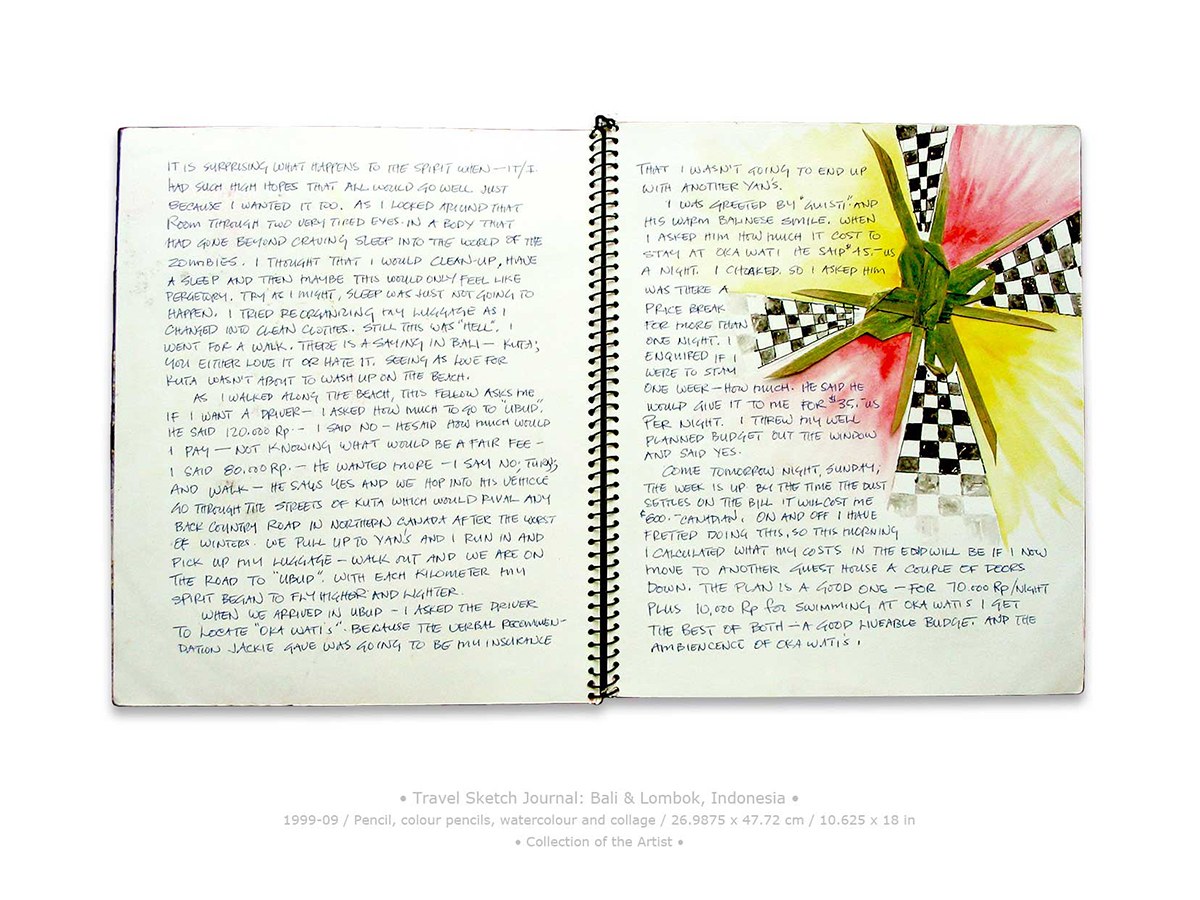 IT IS SURPRISING WHAT HAPPENS TO THE SPIRIT WHEN — IT/I
HAD SUCH HIGH HOPES THAT ALL WOULD GO WELL JUST
BECAUSE I WANTED IT TOO. AS I LOOKED AROUND THAT
ROOM THROUGH TWO VERY TIRED EYES. IN A BODY THAT
HAD GONE BEYOND CRAVING SLEEP INTO THE WORLD OF THE
ZOMBIES. I THOUGHT THAT I WOULD CLEAN-UP, HAVE
A SLEEP AND THEN MAYBE THIS WOULD ONLY FEEL LIKE
PERGETORY. TRY AS I MIGHT, SLEEP WAS JUST NOT GOING TO
HAPPEN. I TRIED REORGANIZING MY LUGGAGE AS I
CHANGED INTO CLEAN CLOTHES. STILL THIS WAS "HELL". I
WENT FOR A WALK. THERE IS A SAYING IN BALI — KUTA;
YOU EITHER LOVE IT OR HATE IT. SEEING AS LOVE FOR
KUTA WASN'T ABOUT TO WASH UP ON THE BEACH.
AS I WALKED ALONG THE BEACH, THIS FELLOW ASKS ME
IF I WANT A DRIVER — I ASKED HOW MUCH TO GO TO "UBUD".
HE SAID 120.000 Rp. — I SAID NO — HE SAID HOW MUCH WOULD
I PAY — NOT KNOWING WHAT WOULD BE A FAIR FEE —
I SAID 80.000 Rp. — HE WANTED MORE — I SAY NO, TURN,
AND WALK — HE SAYS YES AND WE HOP INTO HIS VEHICLE
GO THROUGH THE STREETS OF KUTA WHICH WOULD RIVAL ANY
BACK COUNTRY ROAD IN NORTHERN CANADA AFTER THE WORST
OF WINTERS. WE PULL UP TO YAN'S AND I RUN IN AND
PICK UP MY LUGGAGE — WALK OUT AND WE ARE ON
THE ROAD TO "UBUD". WITH EACH KILOMETER MY
SPIRIT BEGAN TO FLY HIGHER AND LIGHTER.
WHEN WE ARRIVED IN UBUD — I ASKED THE DRIVER
TO LOCATE "OKA WATI'S". BECAUSE THE VERBAL RECOMMEN-
DATION JACKIE GAVE WAS GOING TO BE MY INSURANCE
THAT I WASN'T GOING TO END UP
WITH ANOTHER YAN'S.
I WAS GREETED BY "GUISTI" AND
HIS WARM BALINESE SMILE. WHEN
I ASKED HIM HOW MUCH IT COST TO
STAY AT OKA WATI HE SAID $45.- US
A NIGHT. I CHOAKED. SO I ASKED HIM
WAS THERE A
PRICE BREAK
FOR MORE THAN
ONE NIGHT. I
ENQUIRED IF I
WERE TO STAY
ONE WEEK — HOW MUCH. HE SAID HE
WOULD GIVE IT TO ME FOR $35.- US
PER NIGHT. I THREW MY WELL
PLANNED BUDGET OUT THE WINDOW
AND SAID YES.
COME TOMORROW NIGHT, SUNDAY,
THE WEEK IS UP. BY THE TIME THE DUST
SETTLES ON THE BILL IT WILL COST ME
$600.- CANADIAN. ON AND OFF I HAVE
FRETTED DOING THIS, SO THIS MORNING
I CALCULATED WHAT MY COSTS IN THE END WILL BE IF I NOW
MOVE TO ANOTHER GUEST HOUSE A COUPLE OF DOORS
DOWN. THE PLAN IS A GOOD ONE — FOR 70.000 Rp/NIGHT
PLUS 10,000 Rp FOR SWIMMING AT OKA WATI'S I GET
THE BEST OF BOTH — A GOOD LIVEABLE BUDGET AND THE
AMBIENCENCE OF OKA WATI'S!
• Travel Sketch Journal: Bali & Lombok, Indonesia •
1999-09 / Pencil, colour pencils, watercolour and collage / 26.9875 x 47.72 cm / 10.625 x 18 in
• Collection of the Artist •